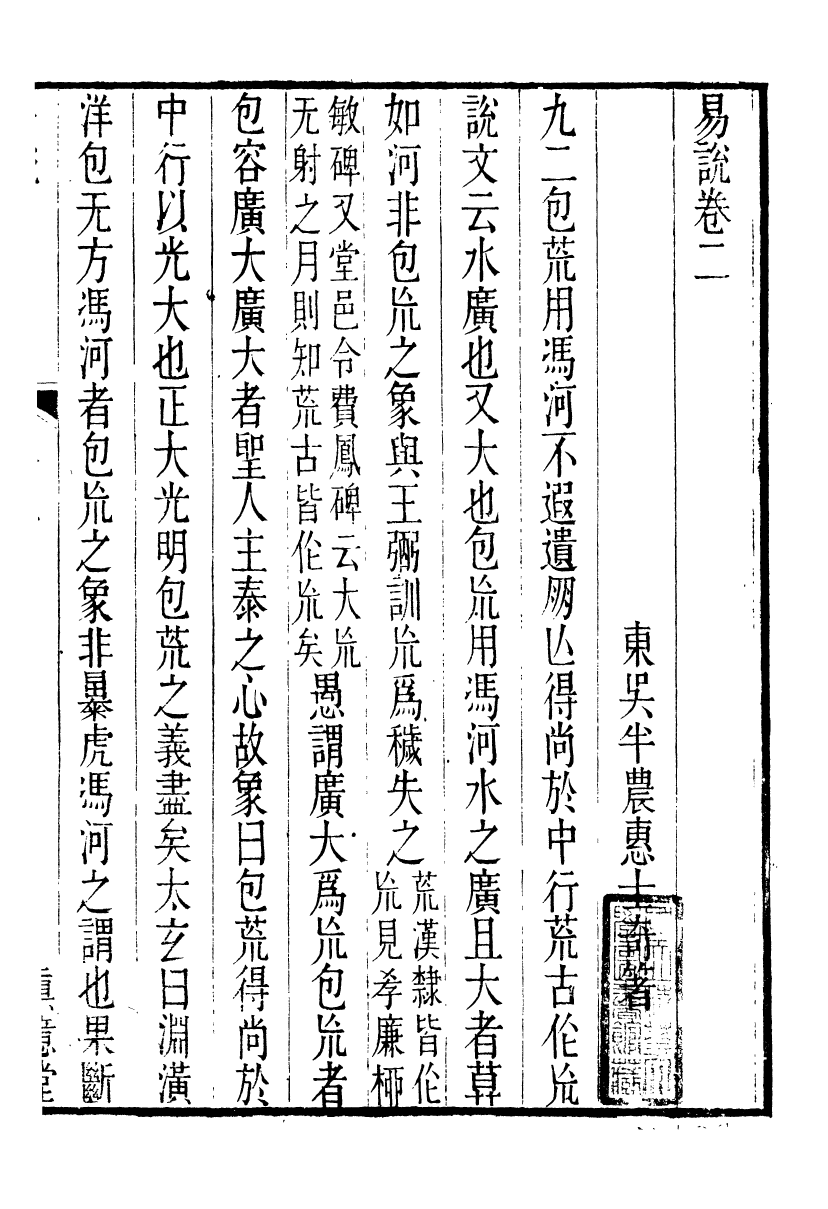 易說卷二
東吳半農惠士奇著
九二包荒用馮河不遐遺朙亾得尚於中行荒古作㠩
說文云水廣也又大也包㠩用馮河水之廣且大者莫
如河非包㠩之象與王弼訓㠩爲穢失之
荒漢隸皆作
㠩見孝廉桺
敏碑又堂邑令費鳳碑云大㠩
无射之月則知荒古皆作㠩矣
愚謂廣大爲㠩包㠩者
包容廣大廣大者聖人主泰之心故象曰包荒得尚於
中行以光大也正大光明包荒之義盡矣太玄曰淵潢
洋包无方馮河者包㠩之象非暴虎馮河之謂也果斷
眞意堂